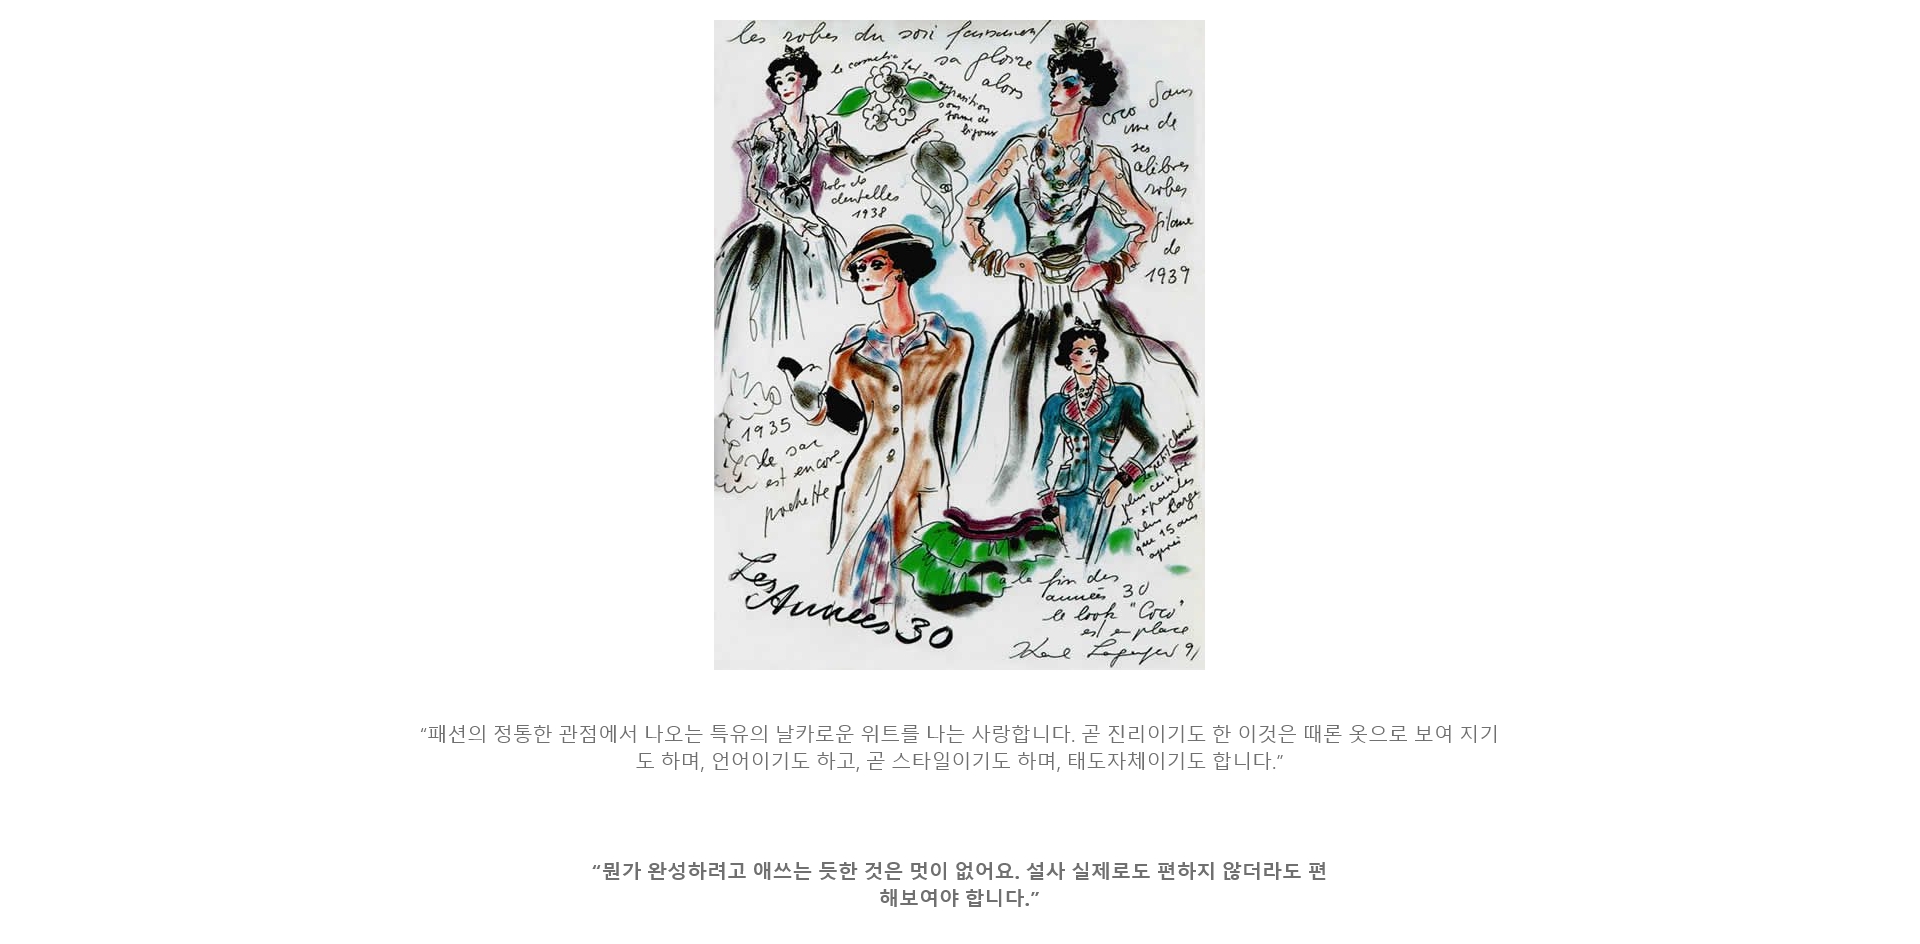 les robes du soir fu
sa gloire
alors
le camelia fait son apparition
sous
forme de
bijoux
Coco dans
une de
ses
célèbres
robes
"gitane"
de
1939
robe de
dentelles
1938
1935
le sac
est encore
pochette
le petit Chanel
plus ceintré
et épaules
plus large
que 15 ans
après
Les Années 30
a la fin des
années 30
le look "Coco"
est en place
Karl Lagerfeld 91
“패션의 정통한 관점에서 나오는 특유의 날카로운 위트를 나는 사랑합니다. 곧 진리이기도 한 이것은 때론 옷으로 보여 지기
도 하며, 언어이기도 하고, 곧 스타일이기도 하며, 태도자체이기도 합니다.”
“뭔가 완성하려고 애쓰는 듯한 것은 멋이 없어요. 설사 실제로도 편하지 않더라도 편
해보여야 합니다.”